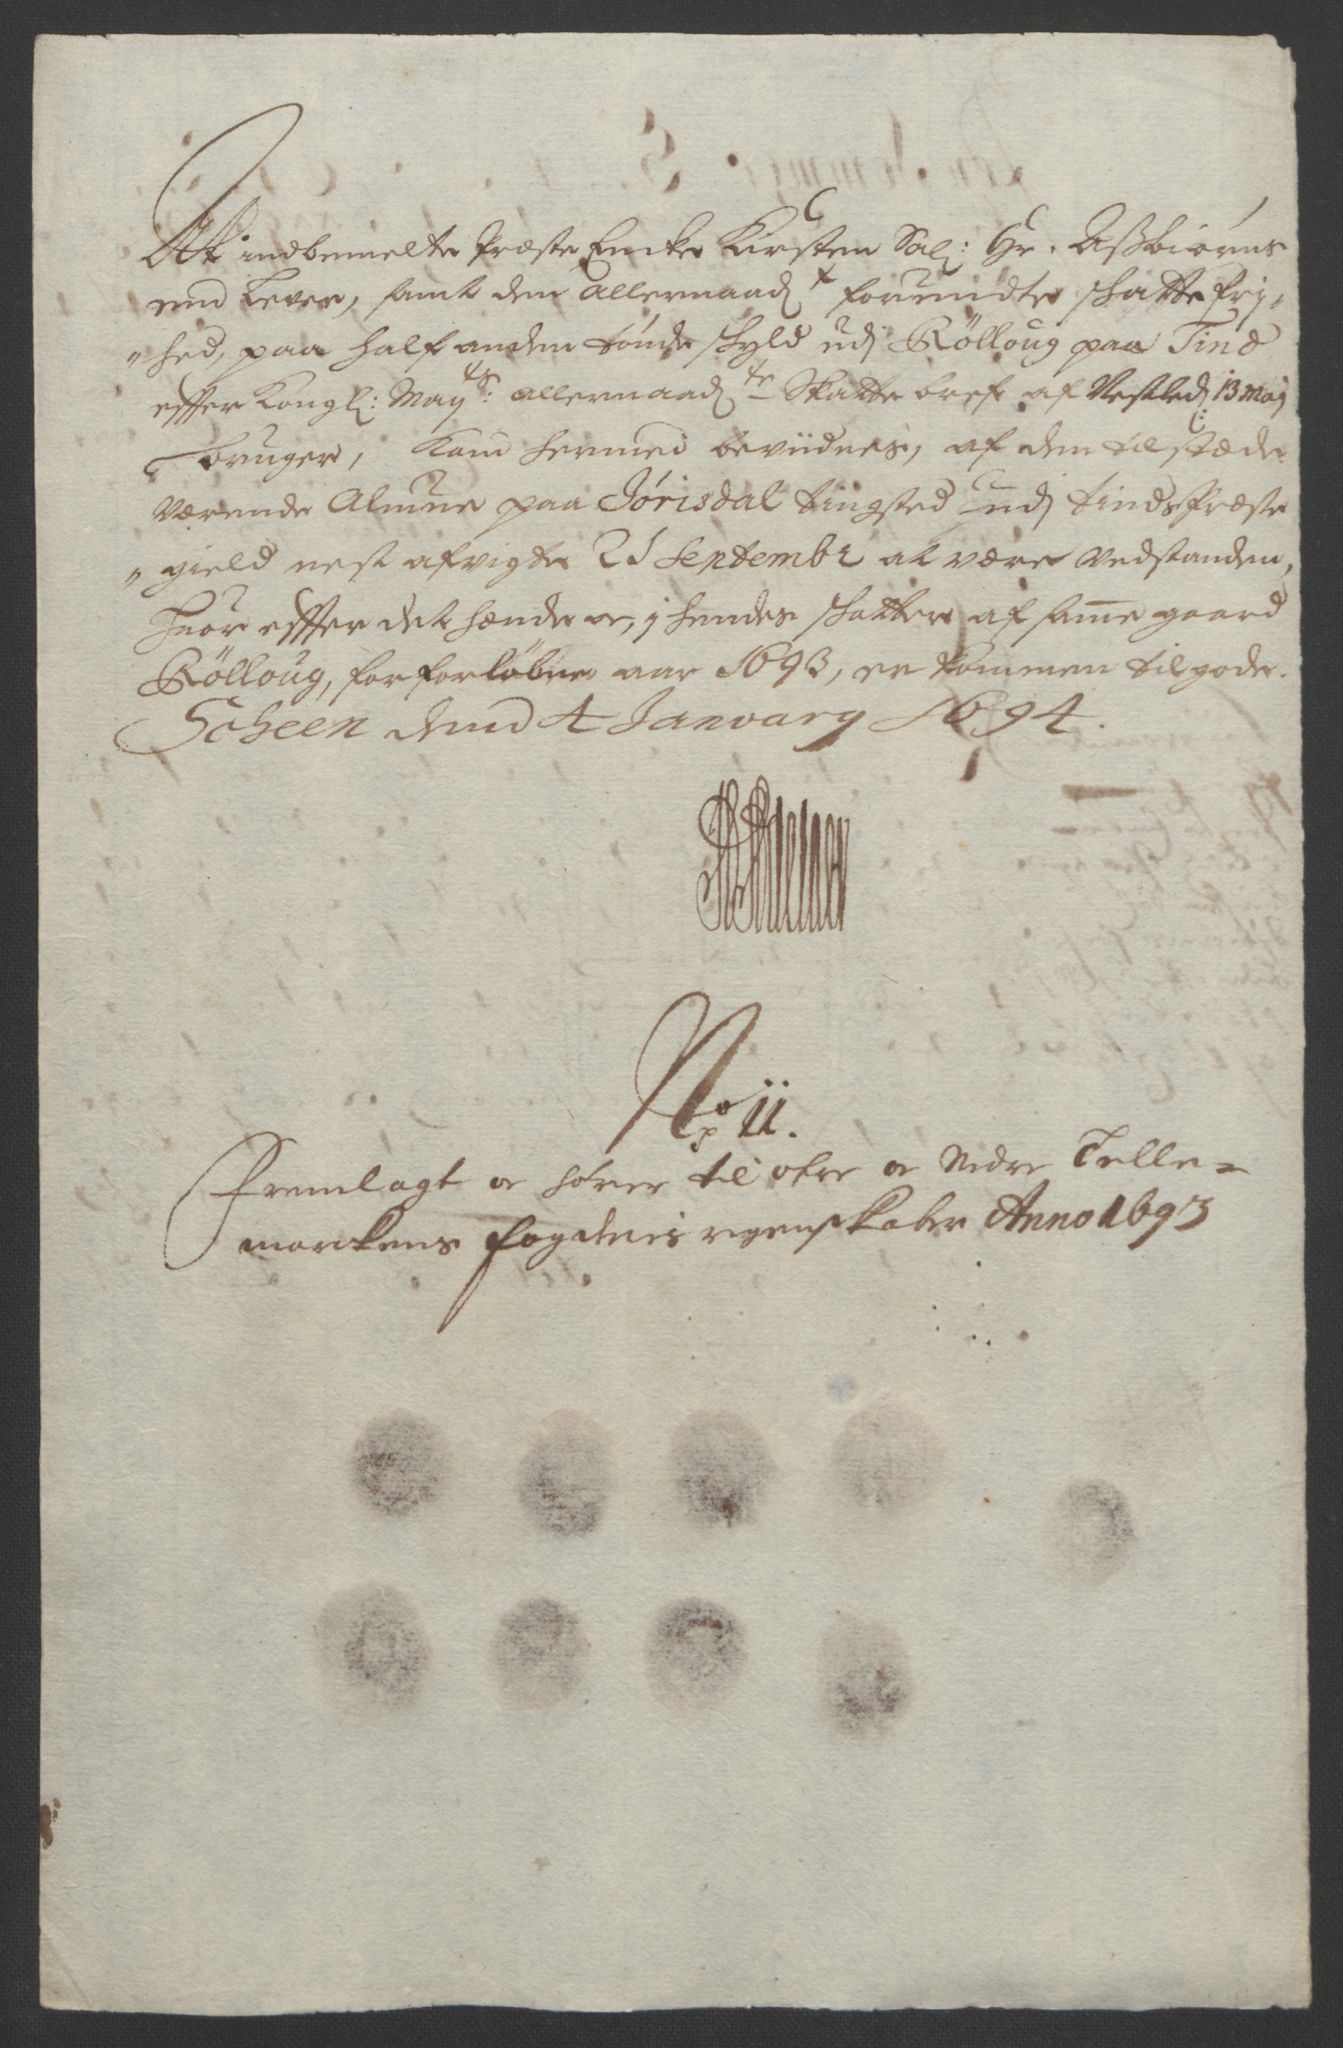 At indbemelte Præste Encke Kirsten Sal: Hr. Aßbiørns
end Lever, samt den allernaad: t forundte skatte frj-
"hed, paa half anden tønde skyld udj Rölloug paa Tind
effter Kongl: May ts: allernaad: te Skatte bref af Nestled 13 Maj
bruger, Kand hermed bevidnes, af den tilstæde
værende Almue paa Jørisdal tingsted udj tinds Præste
"gield nest afvigte 21 Septembr at være vedstanden,
huor effter det hænde er, j hendes skatter af samme gaard
Rölloug, for forløbne aar 1693, er kommen tilgode.
Scheen dend 4 January 1694.

No 11.
Fremlagt oc hører til øfre oc Nedre Telle=
marckens fogderis regenskaber Anno 1693